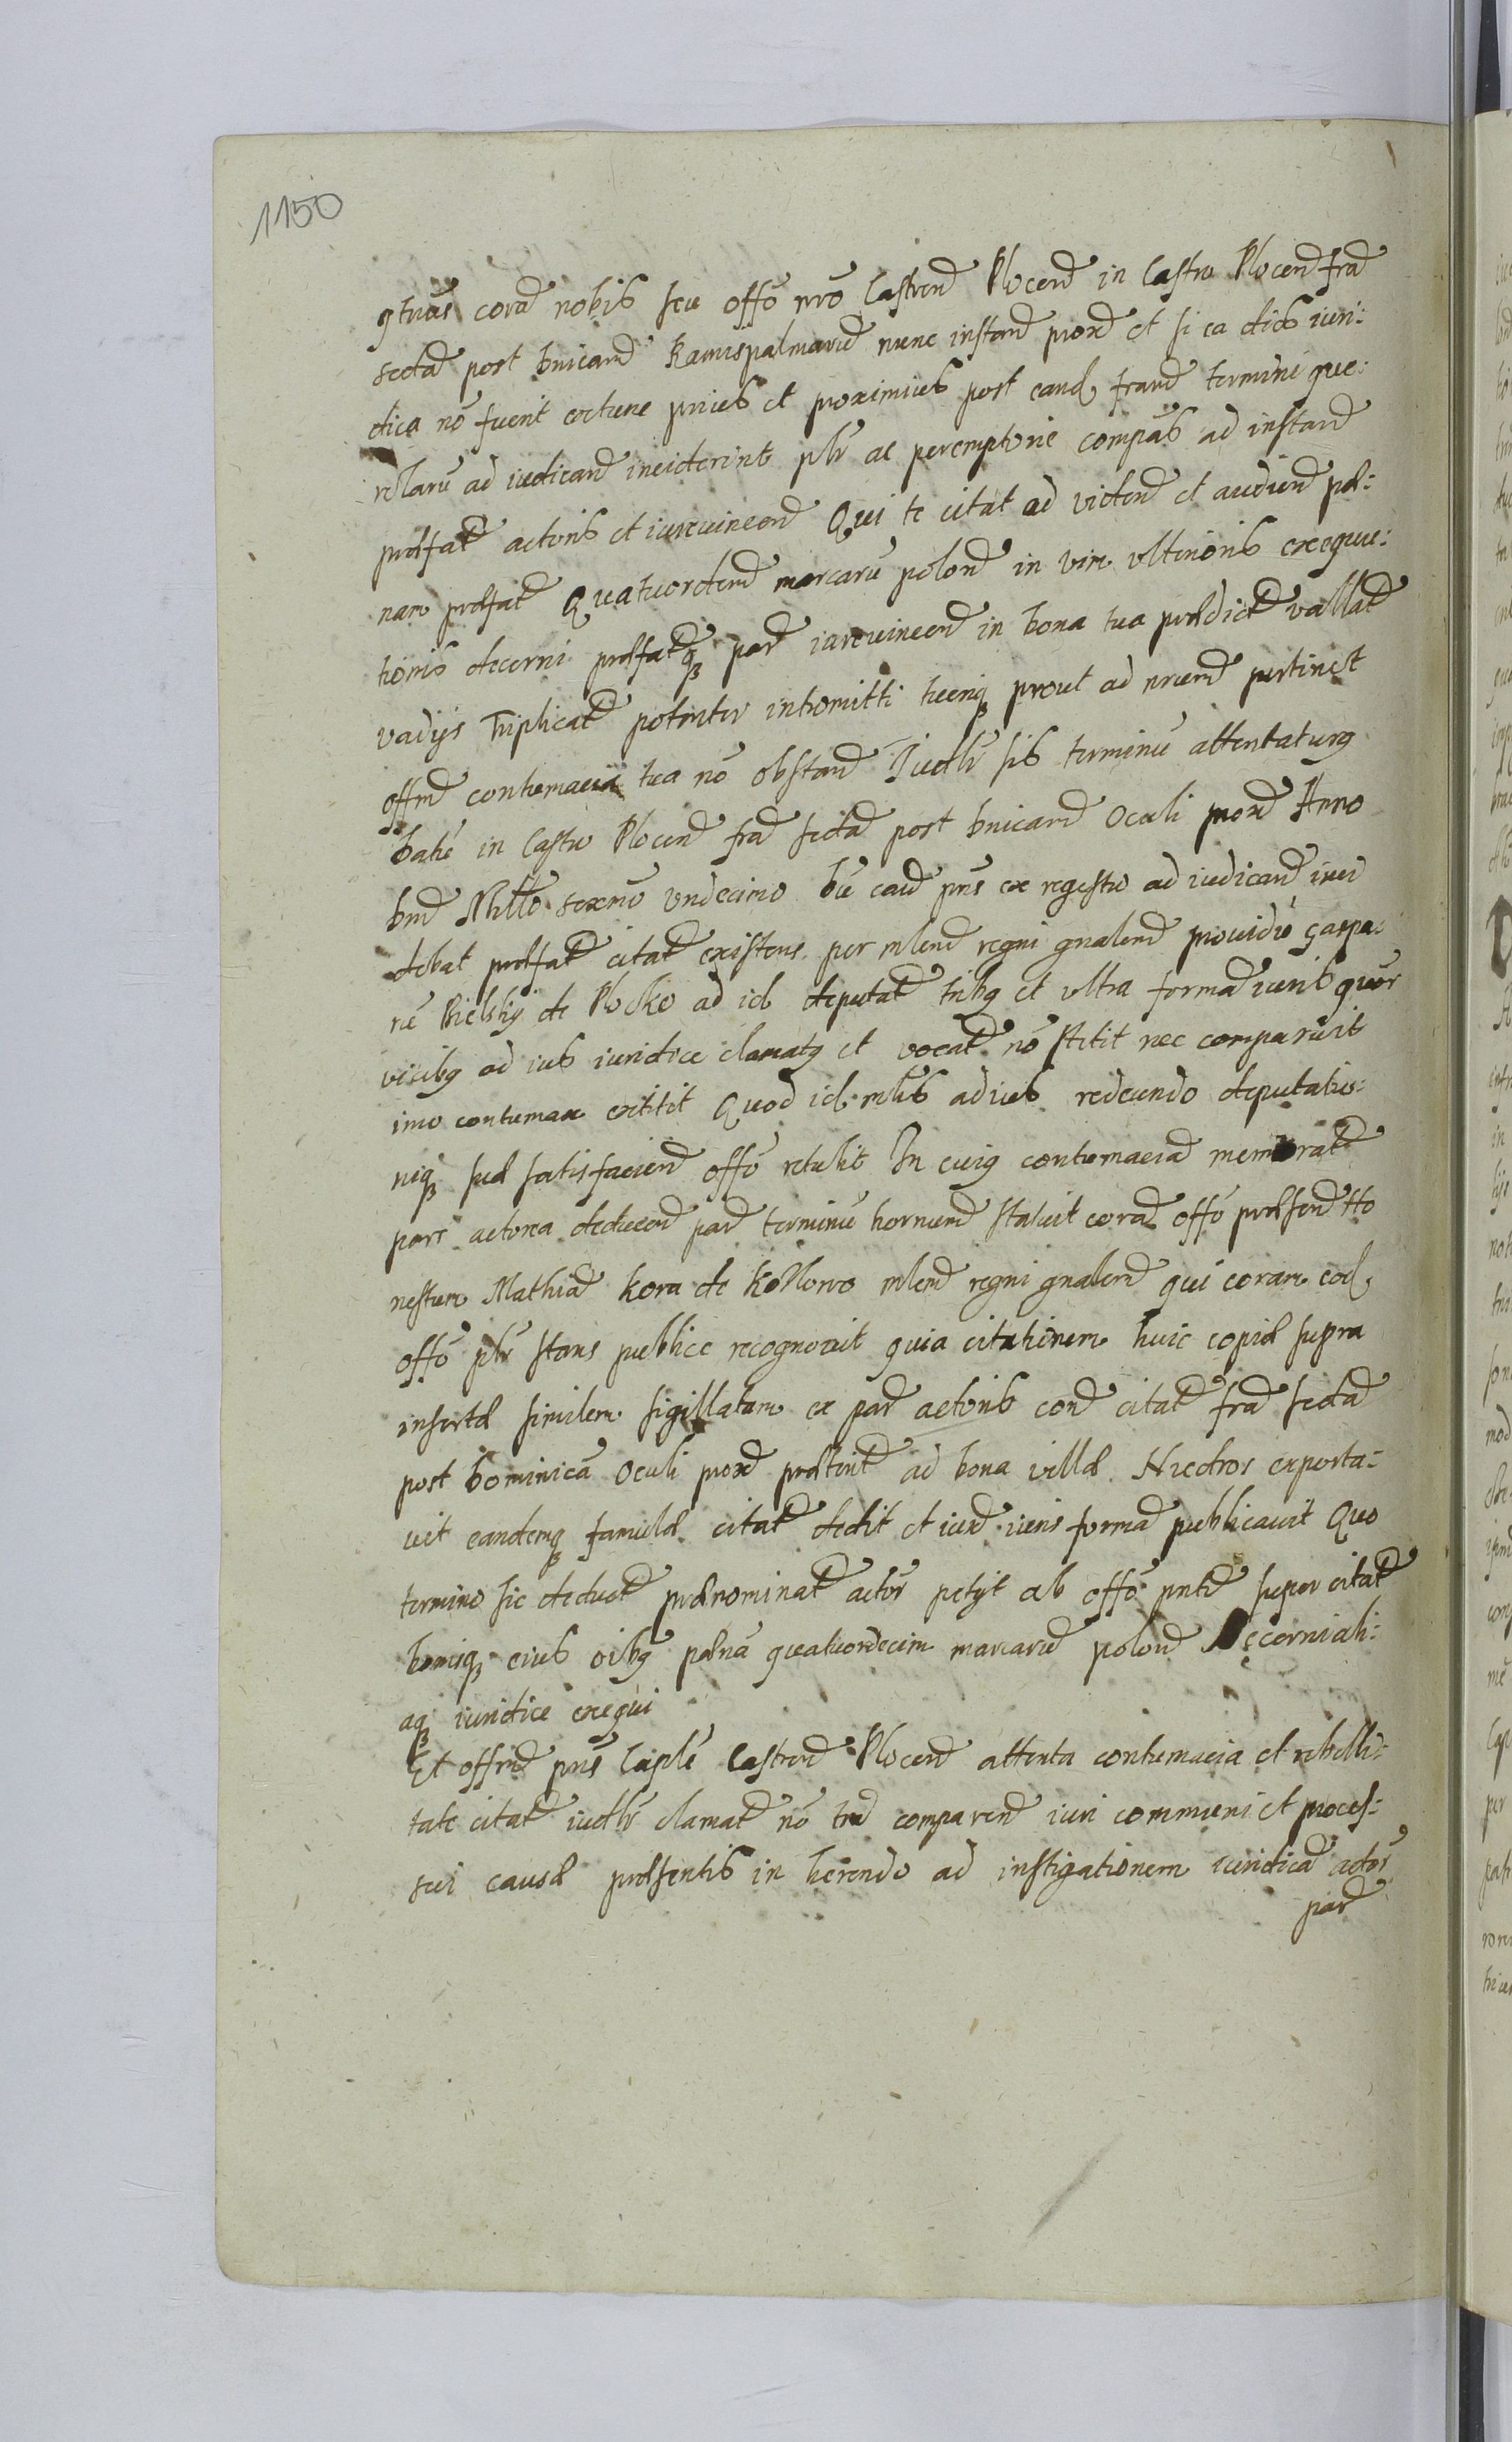 1150
gtuas corã nobis seu offõ nrõ Castren Plocen in Castro Plocen fra
secta post dnicam Ramispalmaru nunc instan prox et si ea dies iuri:
dica nõ fuerit extunc prius et proximius post eand. feram termini que:
relaru ad iudicand inciderint plr ac peremptorie compas ad instan
præfat actoris et iurevincen Qui te citat ad viden et audien pæ:
nam præfat Quatuordeci marcaru polon in vim ulterioris exequu:
tionis decerni præfatqꝫ par iurevincen in bona tua prædict vallat
vadÿs Triplicat potenter intromitti tueriqꝫ prout ad nrum pertinet
offm contumacia tua nõ obstan Iudlr sis terminũ attentaturg
Datũ in Castro Plocen fra secta post Dnicam Oculi prox Anno
Dni Millo sexmo Undecimo Dũ caus pns ex regestro ad iudicand inci
debat præfat citat existens per mlem regni gnalem providũ Caspa:
rũ Bielskÿ de Plocko ad id deputat tribg et ultra forma iuris quer
vicibg ad ius iuridice clamatg et vocat nõ stetit nec comparuit
imo contumax extitit Quod id. mlis ad ius redeundo deputatio:
niqꝫ suæ satisfacien offõ retulit In cuig contumacia memorat
pars actorea deducen par terminũ hornum statuit corã offõ præsen Ho
nestum Mathia Kora de Kozlowo mlem regni gnalem qui coram eod.
offõ plr stans publice recognovit quia citationem huic copiæ supra
insertæ similem sigillatam ex par actoris con citat fra secta
post Dominicã Oculi prox præterit ad bona villæ Niedros exporta:
vit eandemqꝫ familiæ citat dedit et iux iuris forma publicavit Quo
termino sic deduct prænominat actor petÿt ab offõ pnti super citat
bonisqꝫ eius oibg pænã quatuordecim marcaru polon Decerni ali:
aqꝫ iuridice exequi
Et offm pns Caple Castren Plocen attenta contumacia et rebelli:
tate citat iudlr clamat nõ tn comparen iuri communi et proces:
sui causæ præsentis in hærendo ad instigationem iuridica actor
par